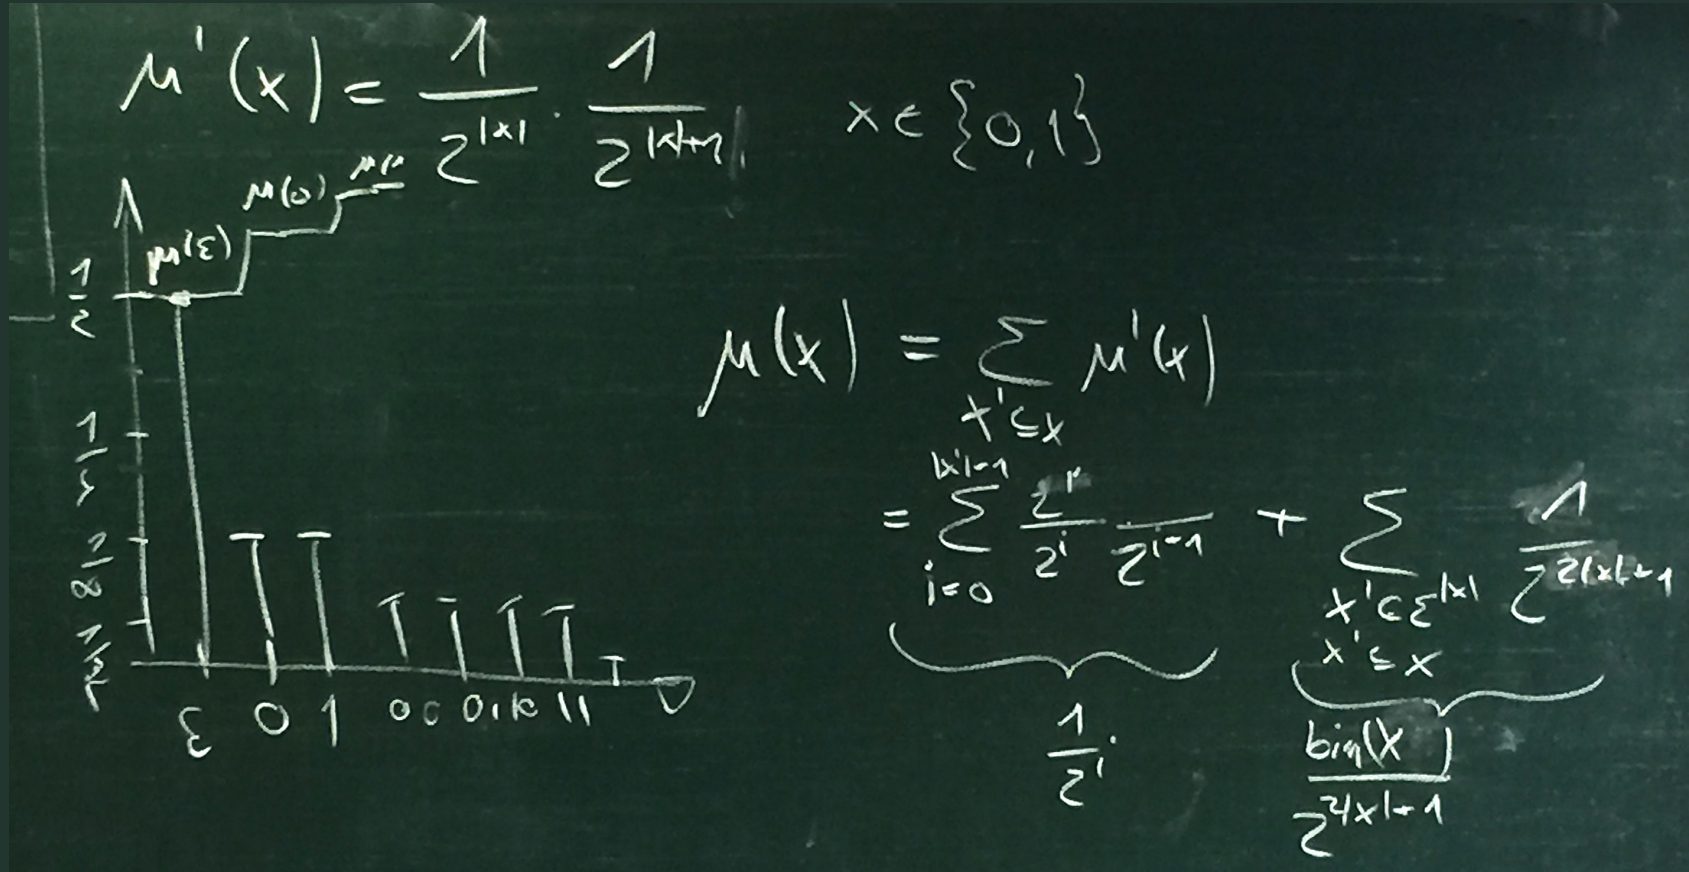 μ'(x) = 1/2^|x| · 1/2^(|x|+1) x ∈ {0,1}
μ(ε) μ(0)
1/2
1/8
ε 0 1 00 01 10 11
μ(x) = Σ_{x'≤x} μ'(x)
= Σ_{i=0}^{|x|-1} 2^i/2^i 1/2^(i+1) + Σ_{x'∈Σ^|x|, x'≤x} 1/2^(2|x|+1)
1/2^i
bin(x)/2^(2|x|+1)